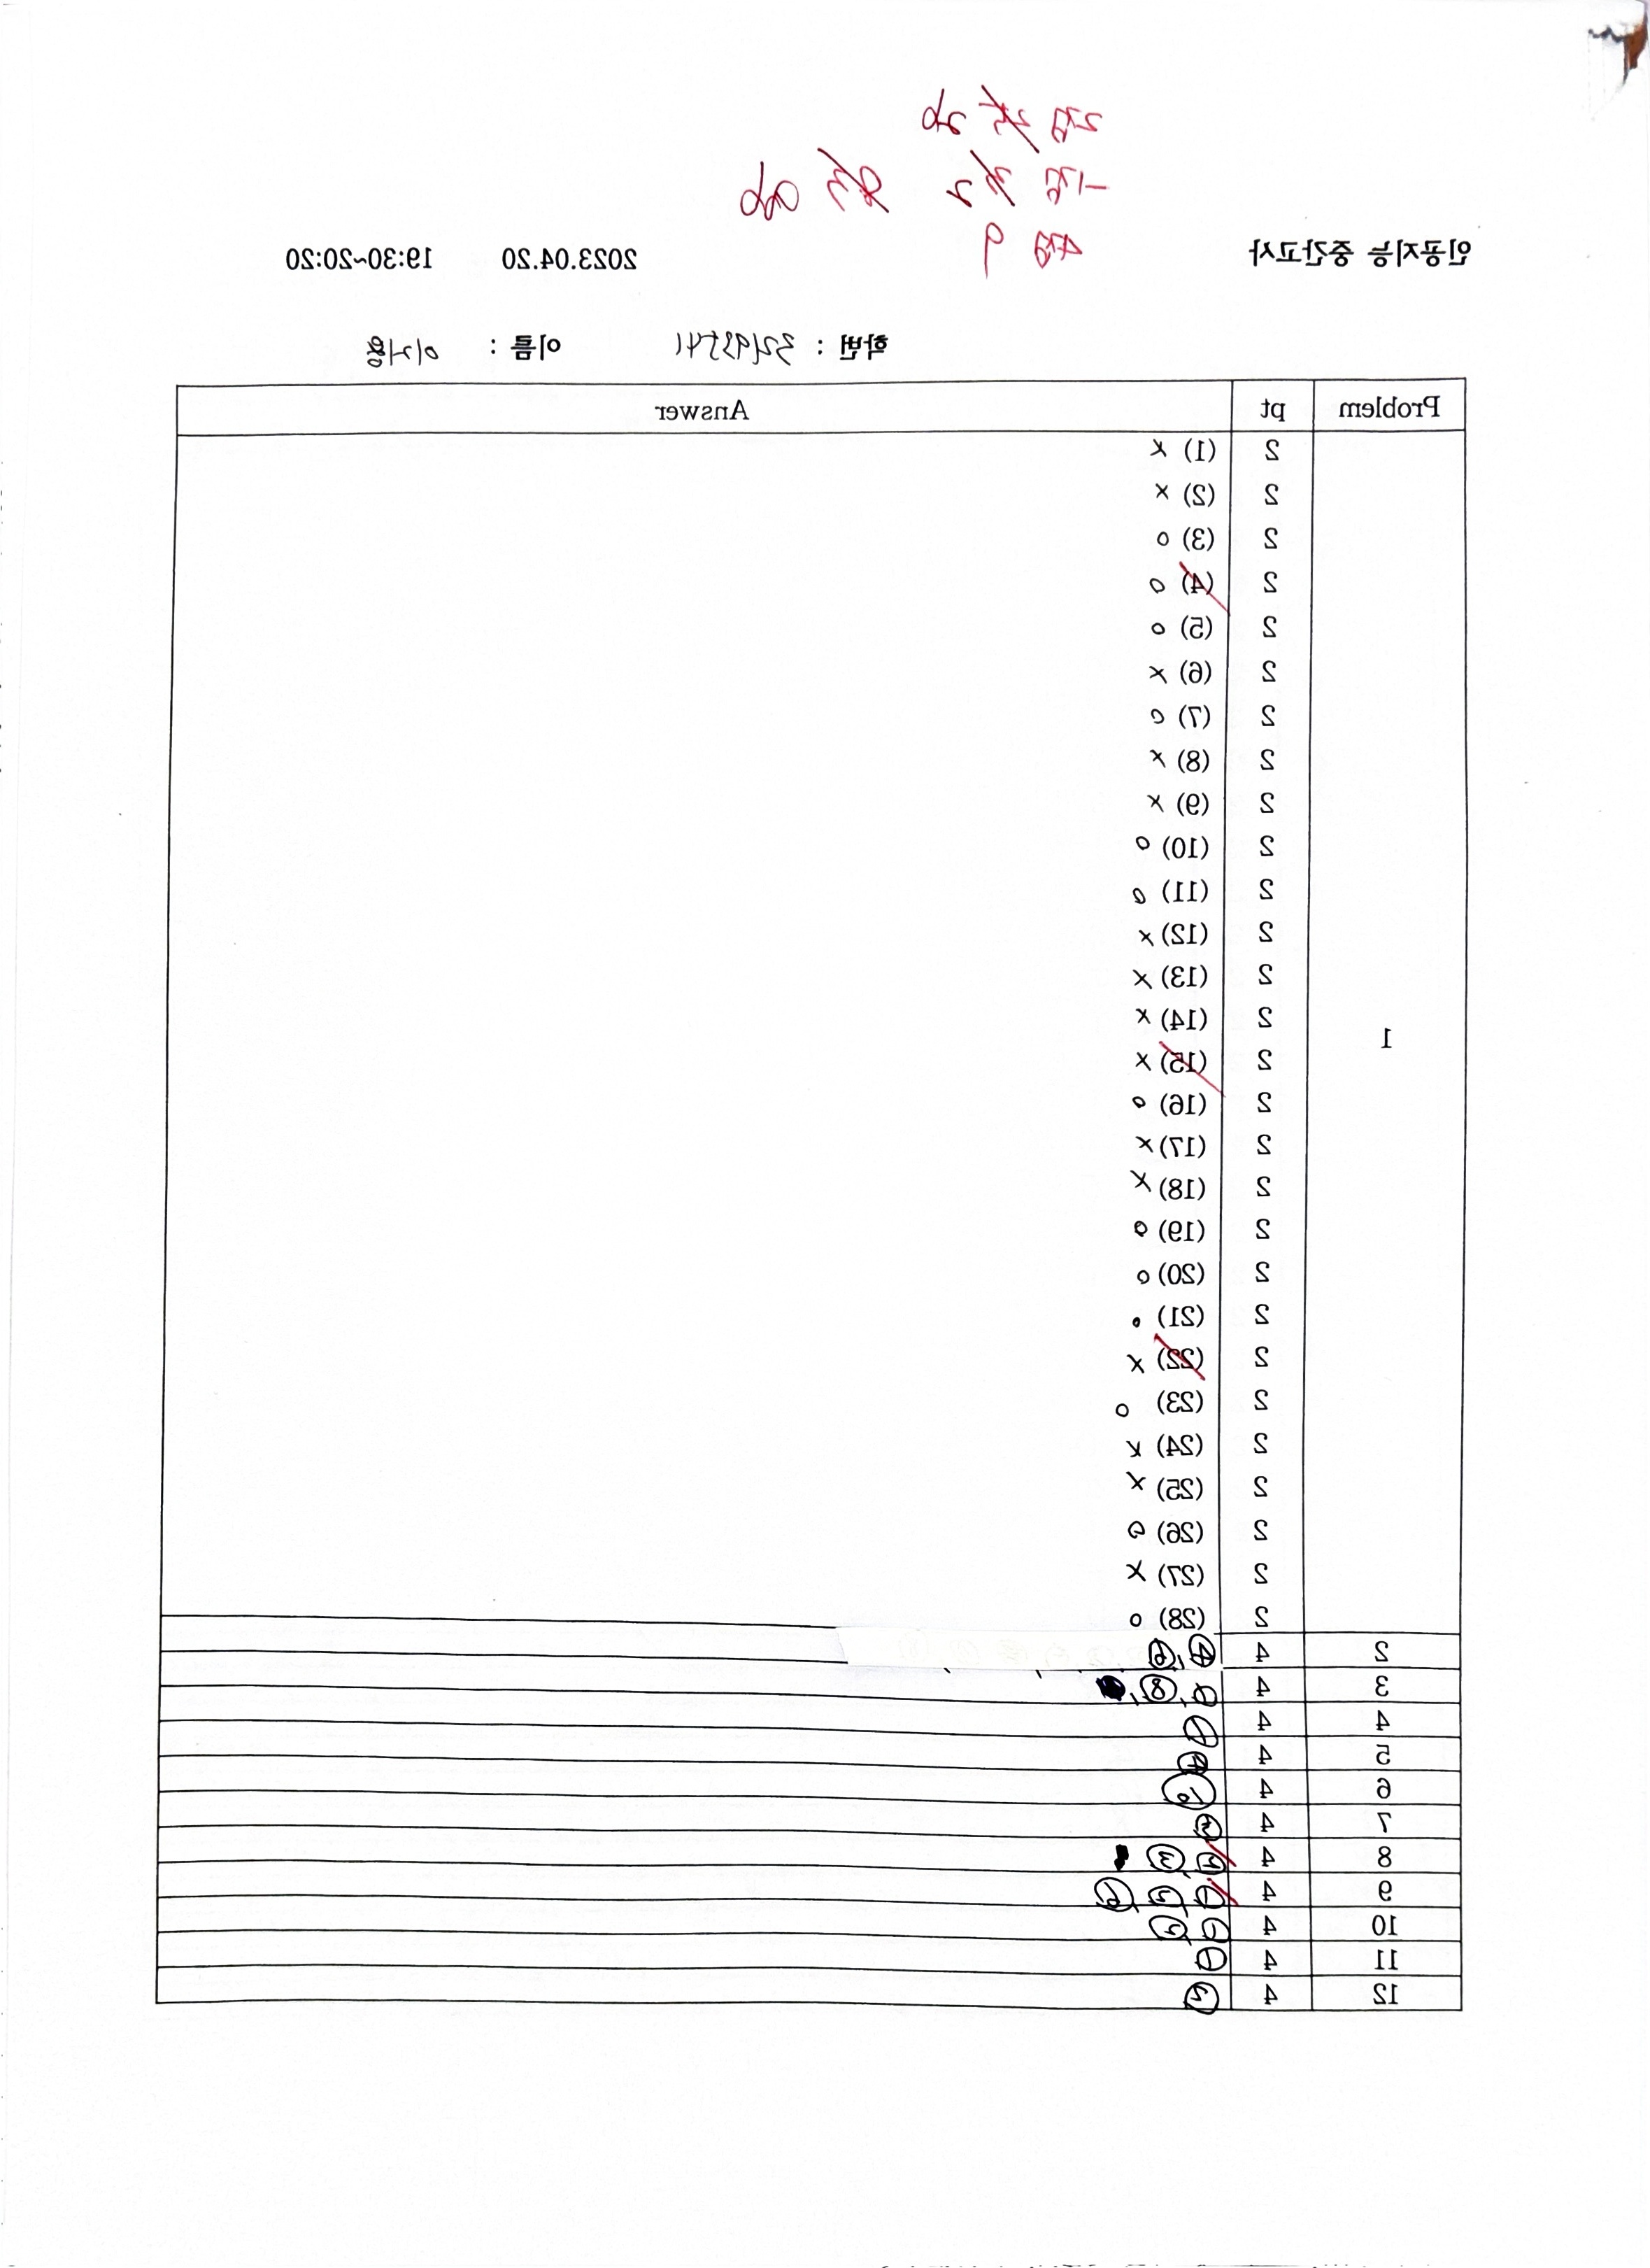 인공지능 중간고사 2023.04.20 19:30~20:20
학번 : 이름 :
Problem pt Answer
1
2 (1) x
2 (2) x
2 (3) o
2 (4) o
2 (5) o
2 (6) x
2 (7) o
2 (8) x
2 (9) x
2 (10) o
2 (11) o
2 (12) x
2 (13) x
2 (14) x
2 (15) x
2 (16) o
2 (17) x
2 (18) x
2 (19) o
2 (20) o
2 (21) o
2 (22) x
2 (23) o
2 (24) x
2 (25) x
2 (26) o
2 (27) x
2 (28) o
2 4 ④, ⑥
3 4 ①, ⑧,
4 4 ①
5 4 ④
6 4
7 4
8 4 ③
9 4 ①
10 4 ①
11 4 ①
12 4